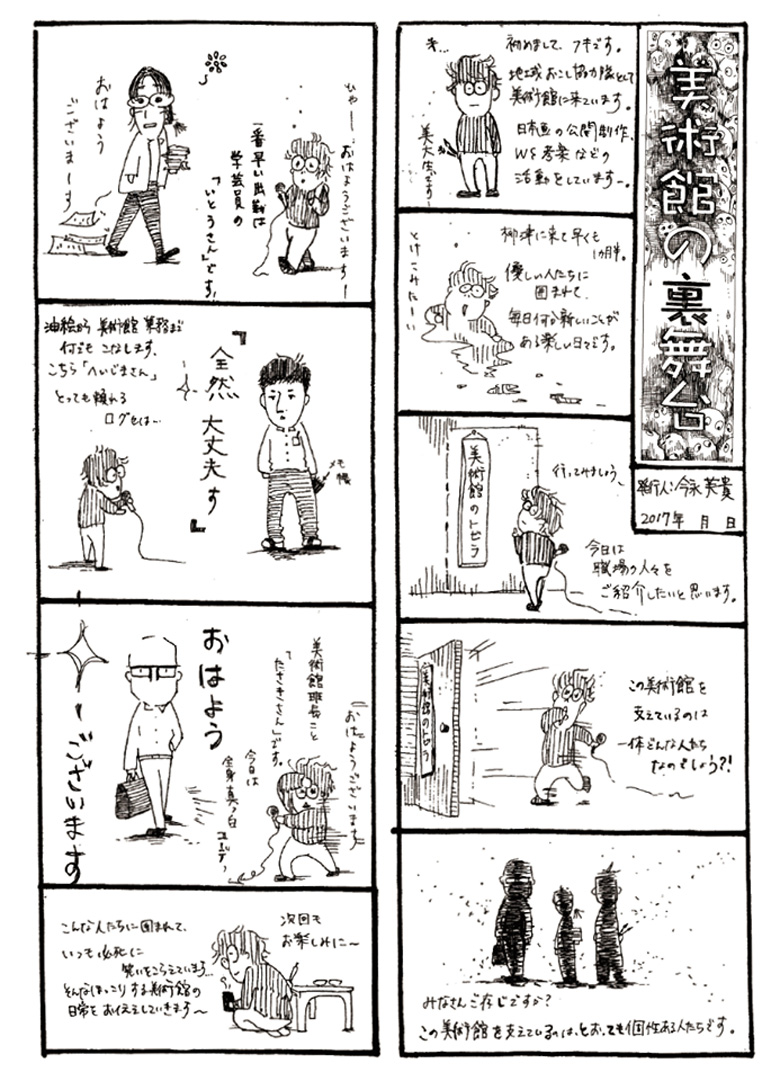 美術館の裏舞台
発行人:今永美貴
2017年 月 日
初めまして、フキです。
地域おこし協力隊として
美術館に来ています。
日本画の公開制作、
WS考案などの
活動をしています～。
美大生です～
柳津に来て早くも
1ヵ月半。
優しい人たちに
囲まれて、
毎日何か新しいことが
ある楽しい日々です。
とけこみたーい
美術館のトビラ
行ってみましょう、
今日は
職場の人々を
ご紹介したいと思います。
美術館のトビラ
この美術館を
支えているのは
一体どんな人たち
なのでしょう?!
みなさんご存じですか?
この美術館を支えているのは、とおっても個性ある人たちです。
ひゃー おはようございますー
一番早い出勤は
学芸員の
「いとうさん」です。
おはよう
ございまーす
油絵から美術館業務まで
何でもこなします、
こちら「へいじまさん」
とっても頼れる
口グセは～
『全然大丈夫す』
メモ帳
おはようございます
美術館班長こと
「たさきさん」です。
今日は
全身真っ白
コーデ
おはよう
ーございます
こんな人たちに囲まれて、
いつも必死に
笑いをこらえています…
そんなほっこりする美術館の
日常をお伝えしていきます～
次回も
お楽しみに～